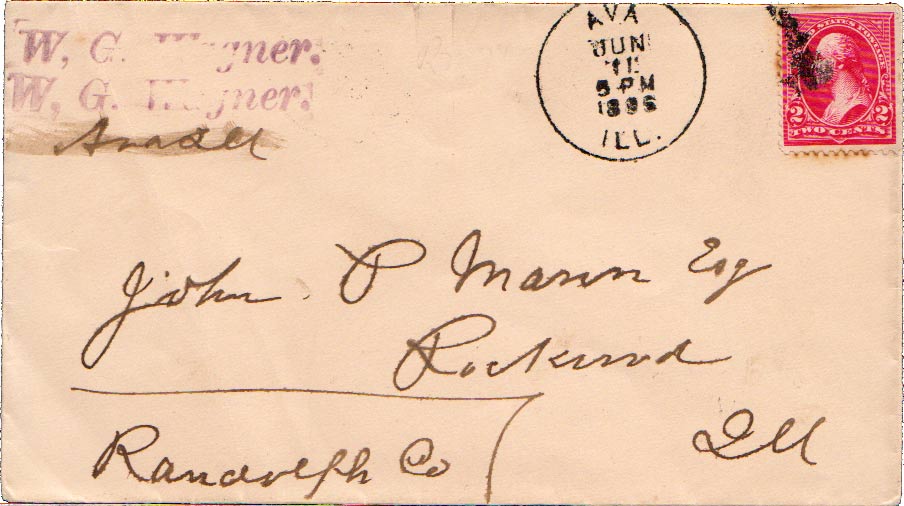 W, G. Wagner.
W, G. Wagner.
Ava Ill
AVA
JUN
11
5 PM
1896
ILL.
UNITED STATES POSTAGE
2 2
TWO CENTS
John P Mann Esq
Rockwood
Randolph Co
Ill